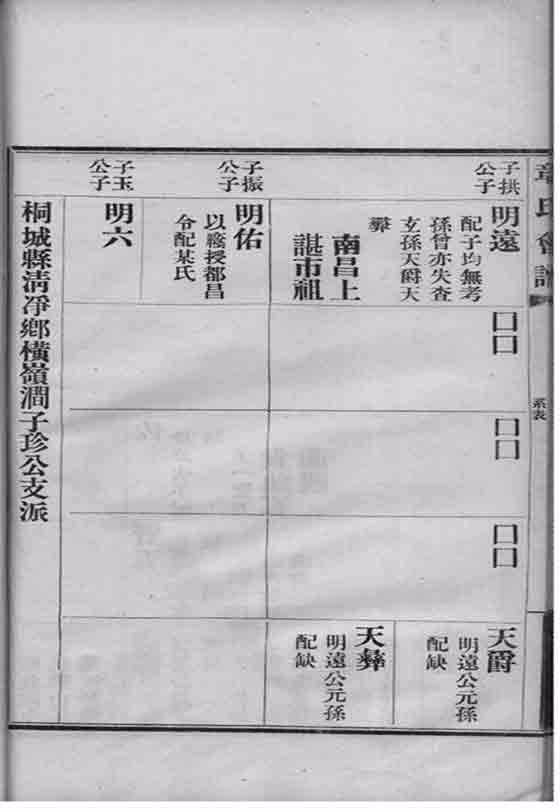 章氏會譜
系表
子拱
公子
明遠
配子均無考
孫曾亦失查
玄孫天爵天
彝
南昌上
諶市祖
□□
□□
□□
天爵
明遠公元孫
配缺
天彝
明遠公元孫
配缺
子振
公子
明佑
以蔭授都昌
令配某氏
子玉
公子
明六
桐城縣清凈鄉橫嶺澗子珍公支派